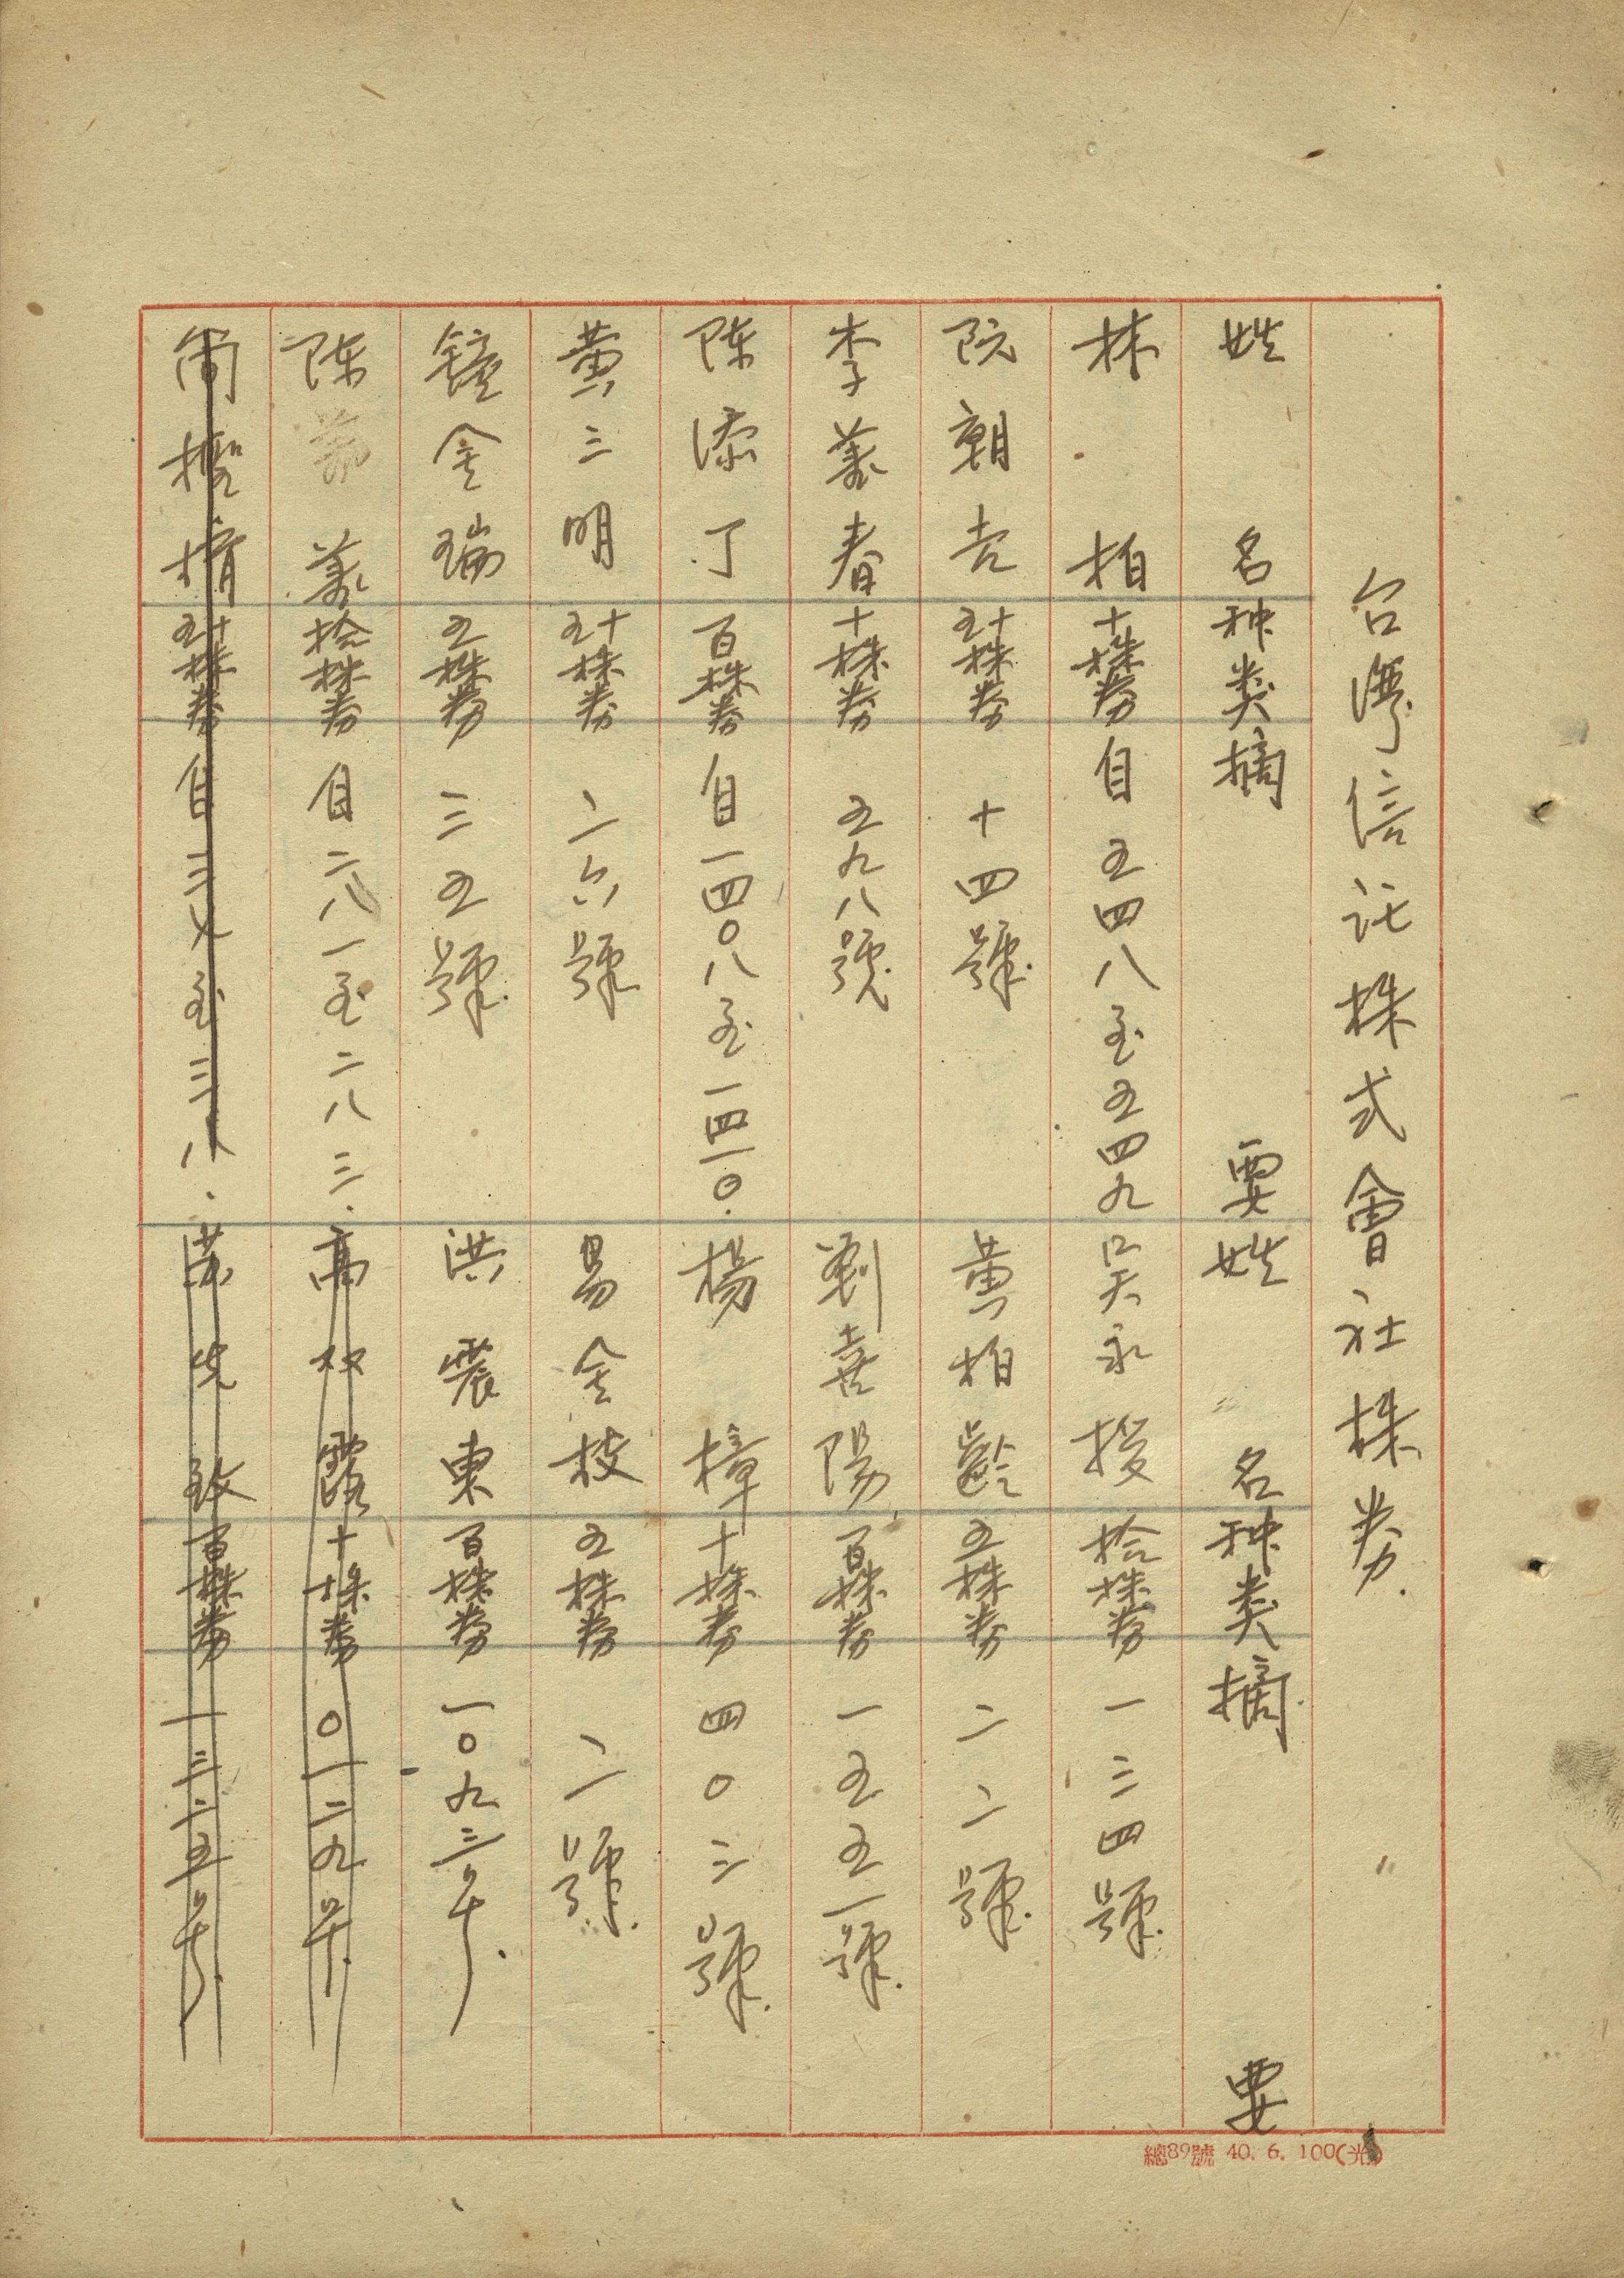 台灣信託株式會社株券.
姓名 种类 摘要 姓名 种类 摘要
林柏 十株券 自五四八至五四九 吳永授 拾株券 一三四號.
阮朝吉 五十株券 十四號. 黃柏齡 五株券 二二號.
李萬春 十株券 五九八號 劉喜陽 百株券 一五五一號.
陈添丁 百株券 自一四〇八至一四一〇. 楊樟 十株券 四〇三號.
黃三明 五十株券 二六號 易金枝 五株券 二號.
鐘金瑞 五株券 三五號. 洪震東 百株券 一〇九三号.
陈萬 拾株券 自二八一至二八三. 高双露 十株券 〇一二九号.
五十株券 自三七至三八. 百株券 一三二五号.
總89號 40. 6. 100(光)